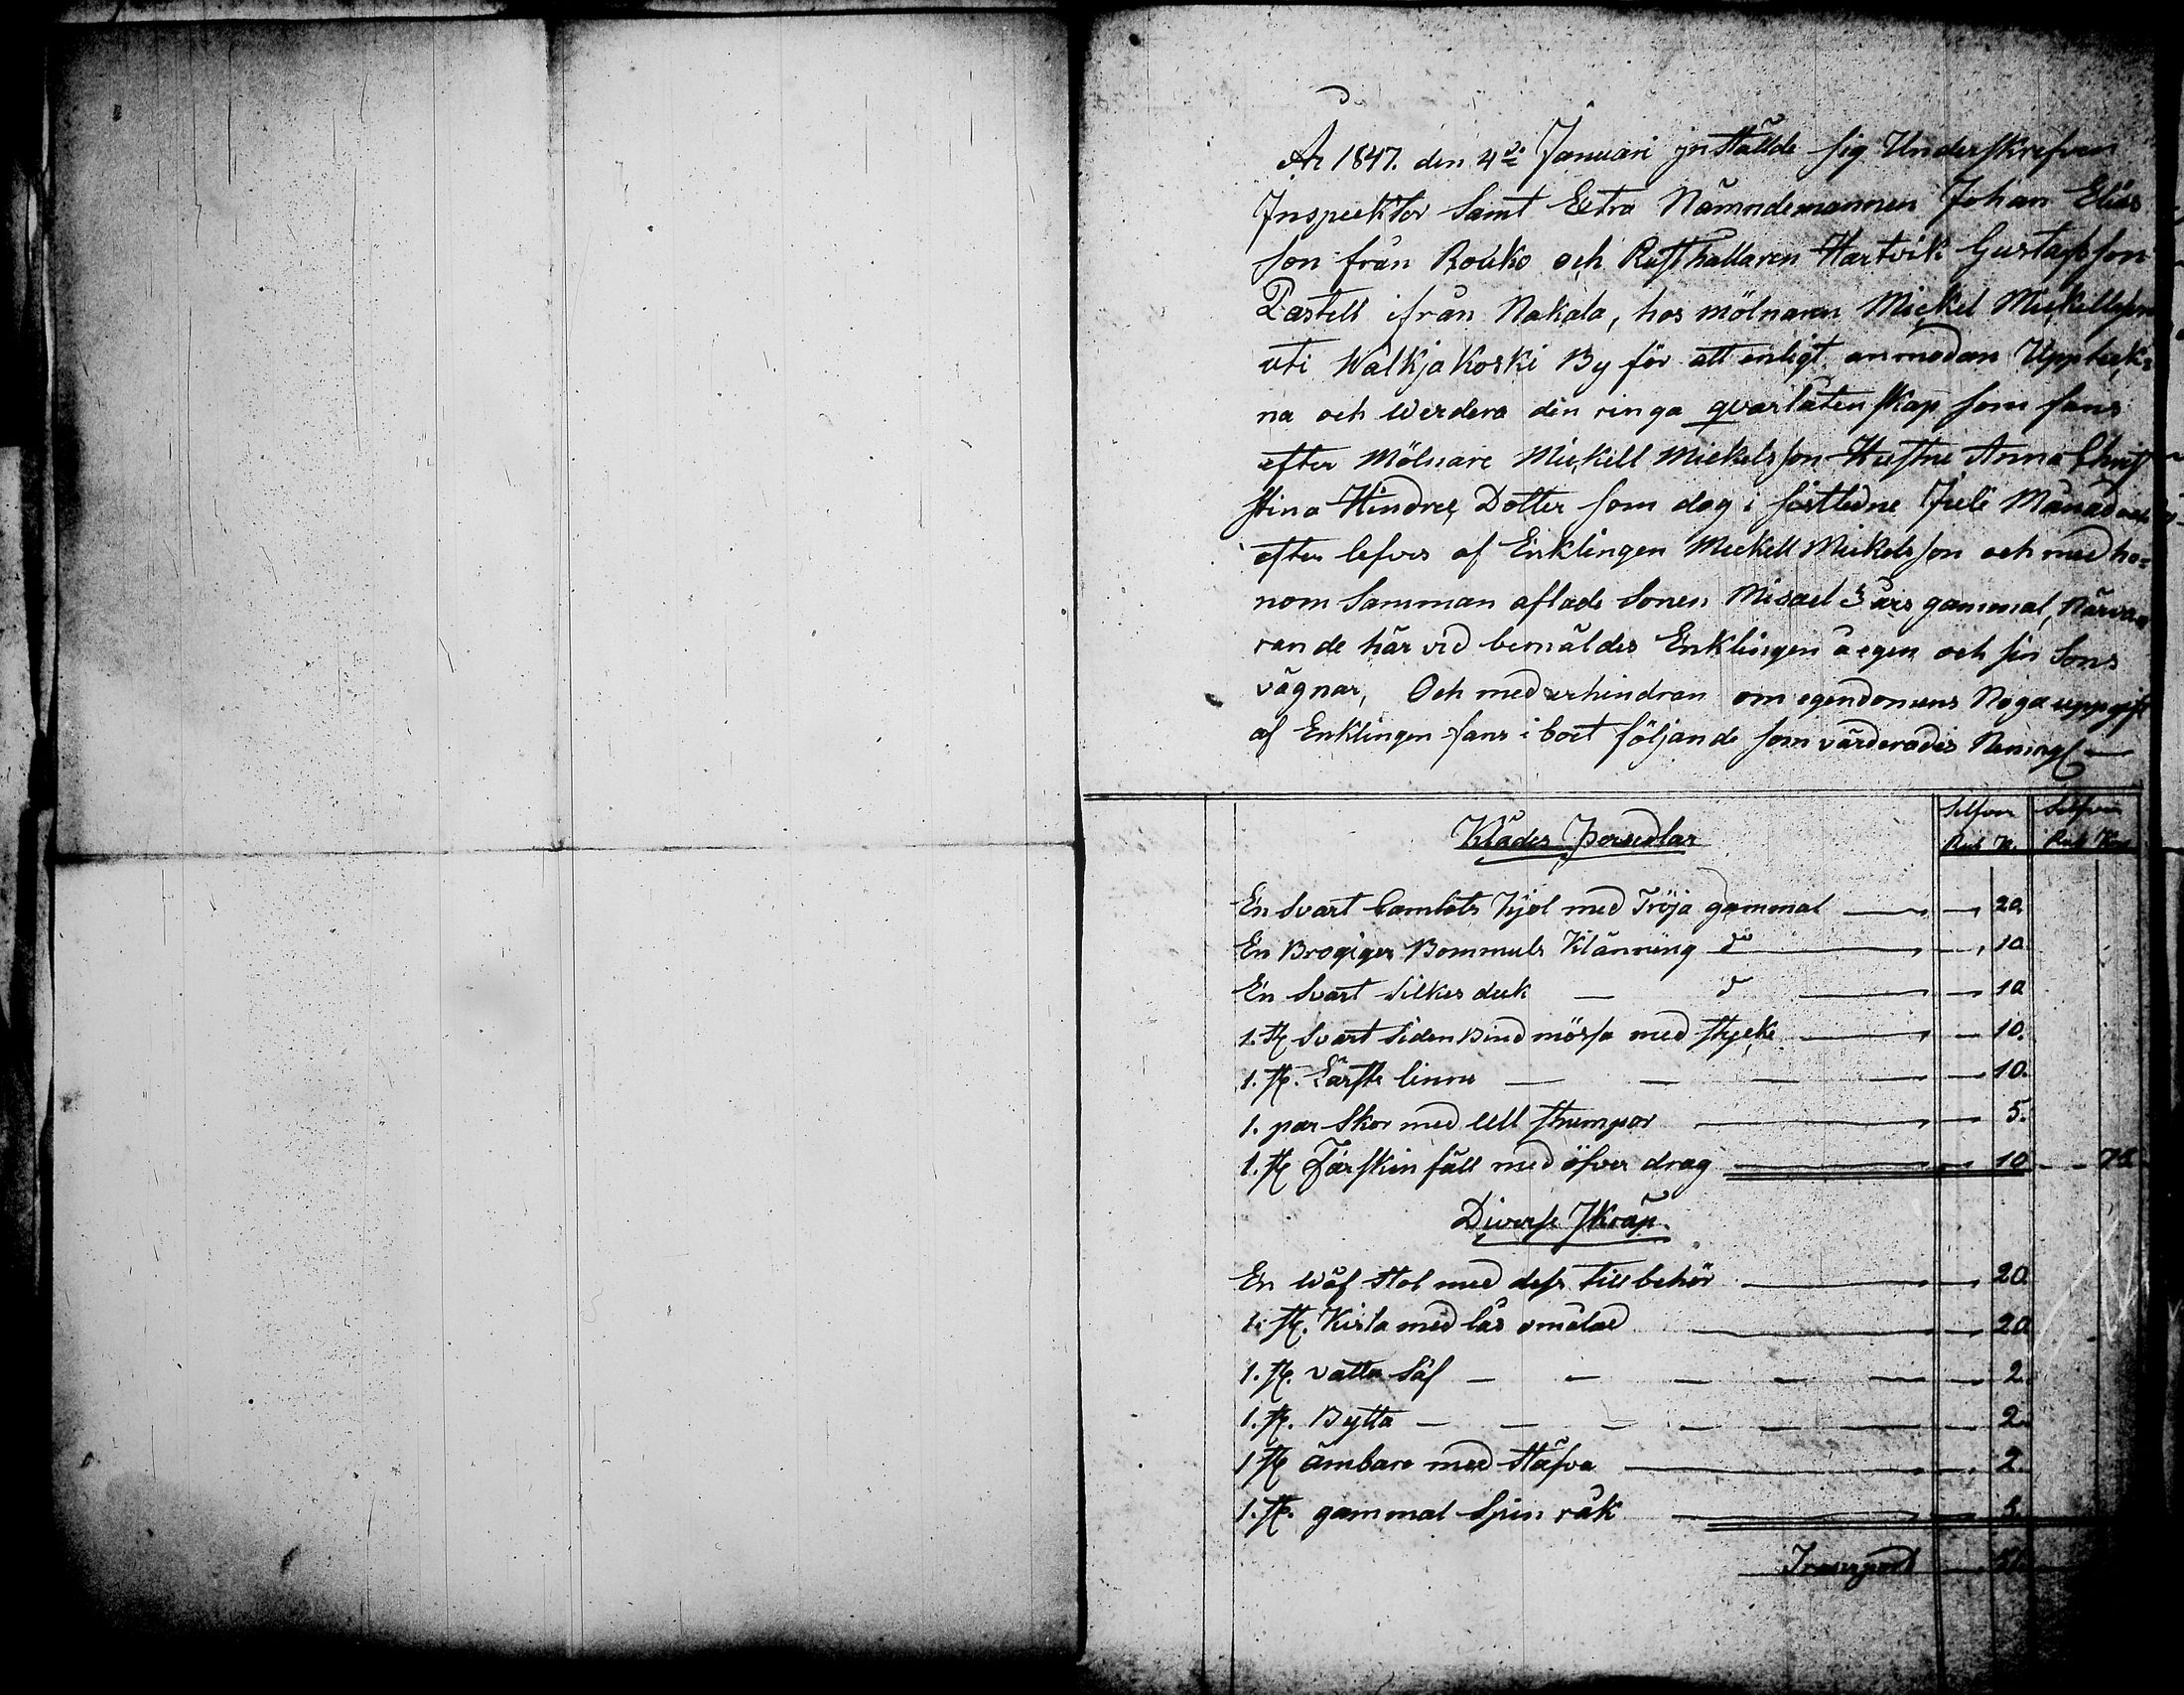 År 1847. den 4de Januari jnstälde sig Underskrefven
Inspecktor Samt Extra Nämndemannen Johan Elias
son från Rouko och Rusthållaren Hartvik Gustafsson
Pastell ifrån Nakala, hos mölnaren Mickel Mickellsson
uti Walkjakoski By för att enligt anmodan Uppteck-
na och Werdera den ringa qvarlåtenskap som fans
efter Mölnare Mickell Mickelsson Hustru Anna Chris
stina Hindrics Dotter som dog i sistledne Juli Månad och
efter lefves af Enklingen Mickell Mickelsson och med ho-
nom Samman aflade Sonen Misael 3 års gammal, Närva-
rande här vid bemäldes Enklingen å egen och sin Sons
vägnar, Och med erhindran om egendomens Noga uppgift
af Enklingen fans i boet följande som värderades Nemngl
Silfver Silfver
Kläders Persedlar Rub K. Rub Kop
En Svart Camlots Kjol med Tröja gammal 20.
En Brogiger Bommuls Klänning do 10
En Svart Silkes duk d 10
1. st Svart Siden Bindmössa med stycke 10.
1. st. Lärfts linne 10.
1. par Skor med Ull strumpor 5.
1. st Fårskin fäll med öfver drag 10 75
Diverse Skräp
En Wäf stol med dess tillbehör 20
1. st. Kista med lås omålad 20
1. st. vatten Så 2.
1. st. Bytta 2.
1 st ämbare med stäfva 2.
1. st. gammal Spin råk 5.
Transport 51.